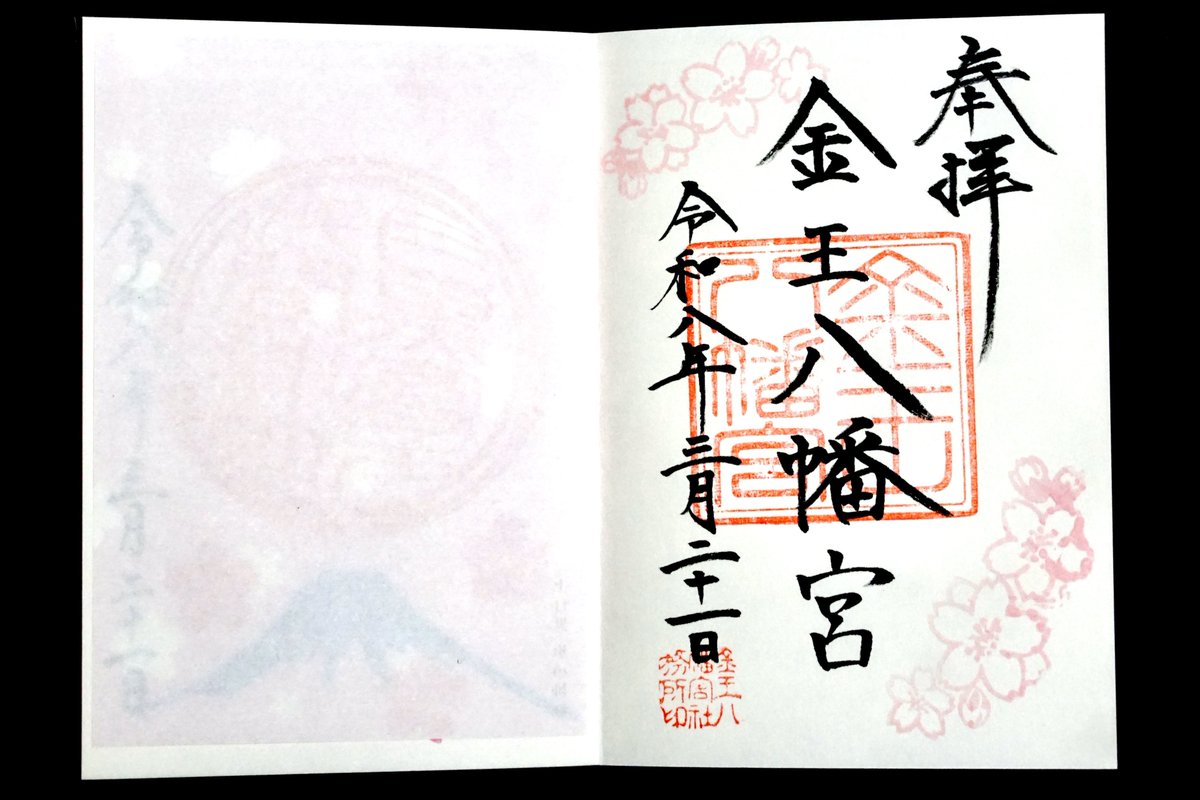 奉拝
金王八幡宮
令和八年三月二十一日
金王八幡宮
金王八幡宮社務所印